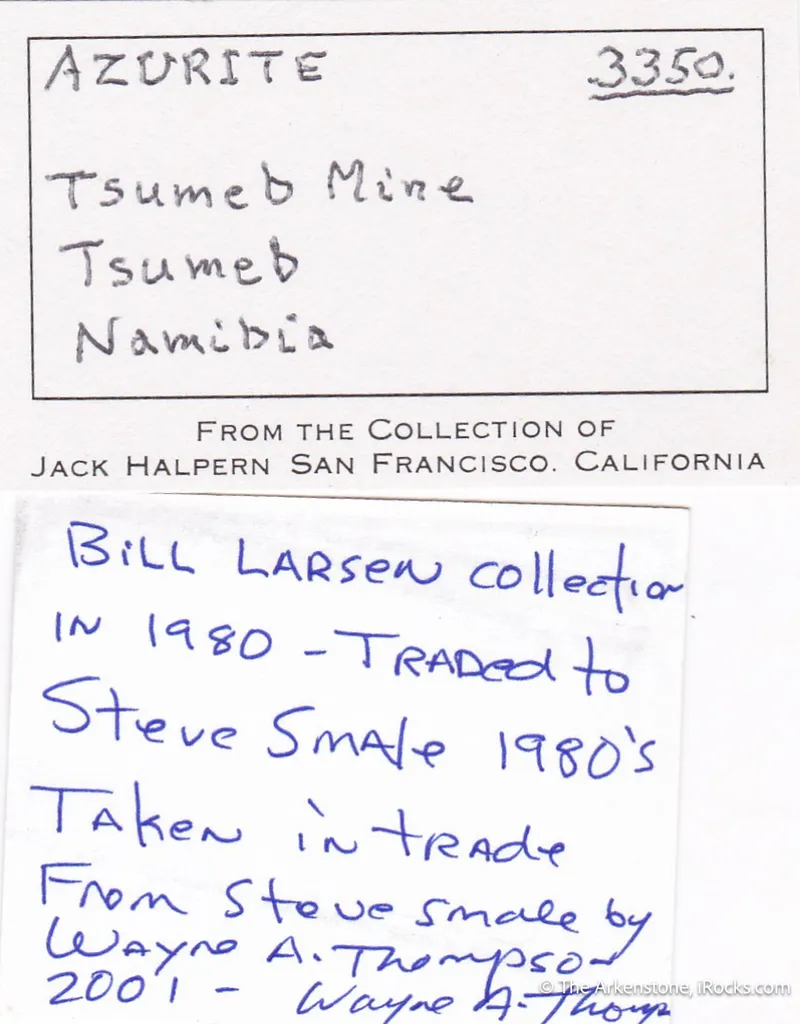 AZURITE 3350.
Tsumeb Mine
Tsumeb
Namibia
FROM THE COLLECTION OF
JACK HALPERN SAN FRANCISCO, CALIFORNIA
BILL LARSEN collection
IN 1980 – TRADED to
Steve Smale 1980's
TAKEN in tRAde
From Steve smale by
WAYNE A. Thompson
2001 – Wayne A. Thomp
© The Arkenstone, iRocks.com